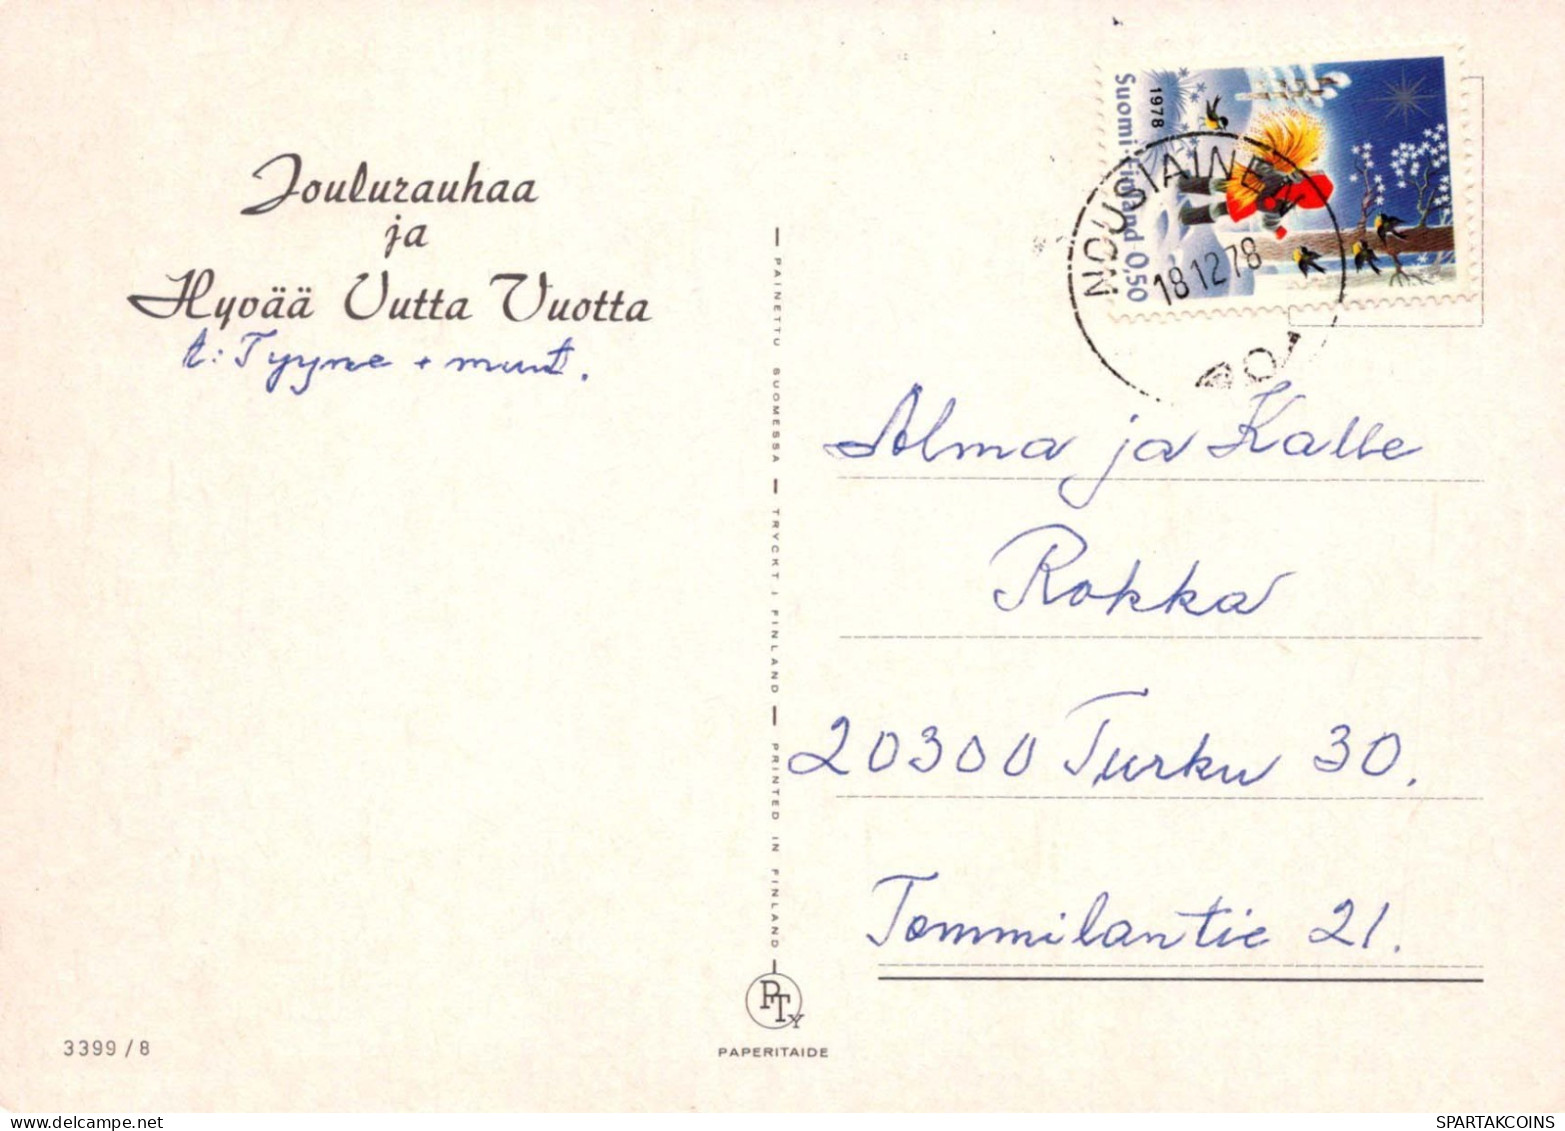 Joulurauhaa
ja
Hyvää Uutta Vuotta
t: Tyyne + muut.
PAINETTU SUOMESSA — TRYCKT I FINLAND — PRINTED IN FINLAND
Suomi·Finland 0,50
1978
NOUSIAINEN
18.12.78
Alma ja Kalle
Rokka
20300 Turku 30.
Tommilantie 21.
PTy
PAPERITAIDE
3399/8
SPARTAKCOINS